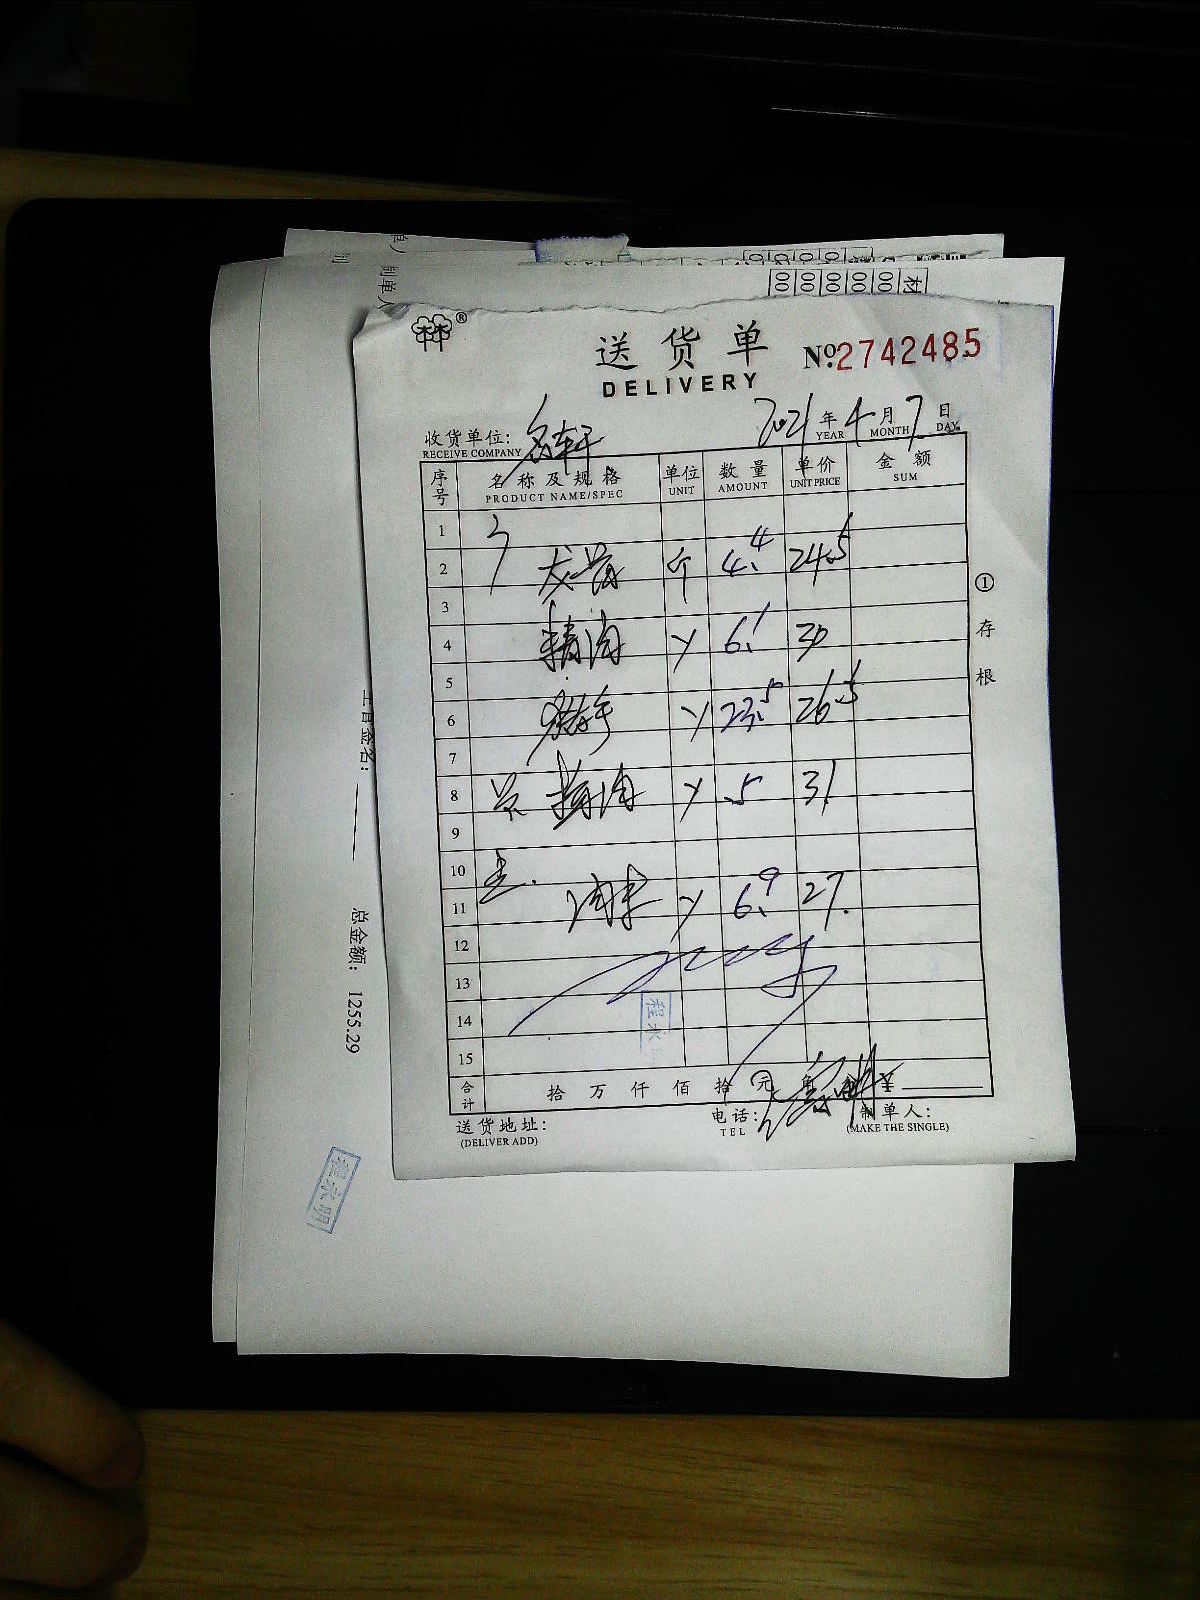 材
00 00 00 00 00
制单人
®
送货单
DELIVERY
№:2742485
收货单位: 名轩
RECEIVE COMPANY
2021年4月7日
YEAR MONTH DAY
序号 名称及规格 单位 数量 单价 金额
PRODUCT NAME/SPEC UNIT AMOUNT UNIT PRICE SUM
1
2 龙骨 斤 4.4 24.5
3
4 精肉 〃 6.1 30
5
6 〃 23.5 26.5
7
8 精肉 〃 5 31
9
10
11 肉末 〃 6.9 27.
12
13
14
15
合计 拾 万 仟 佰 拾 元 角 ¥
送货地址:
(DELIVER ADD)
电话:
TEL
制单人:
(MAKE THE SINGLE)
①存根
主管签名:
总金额: 1255.29
程永明
程永